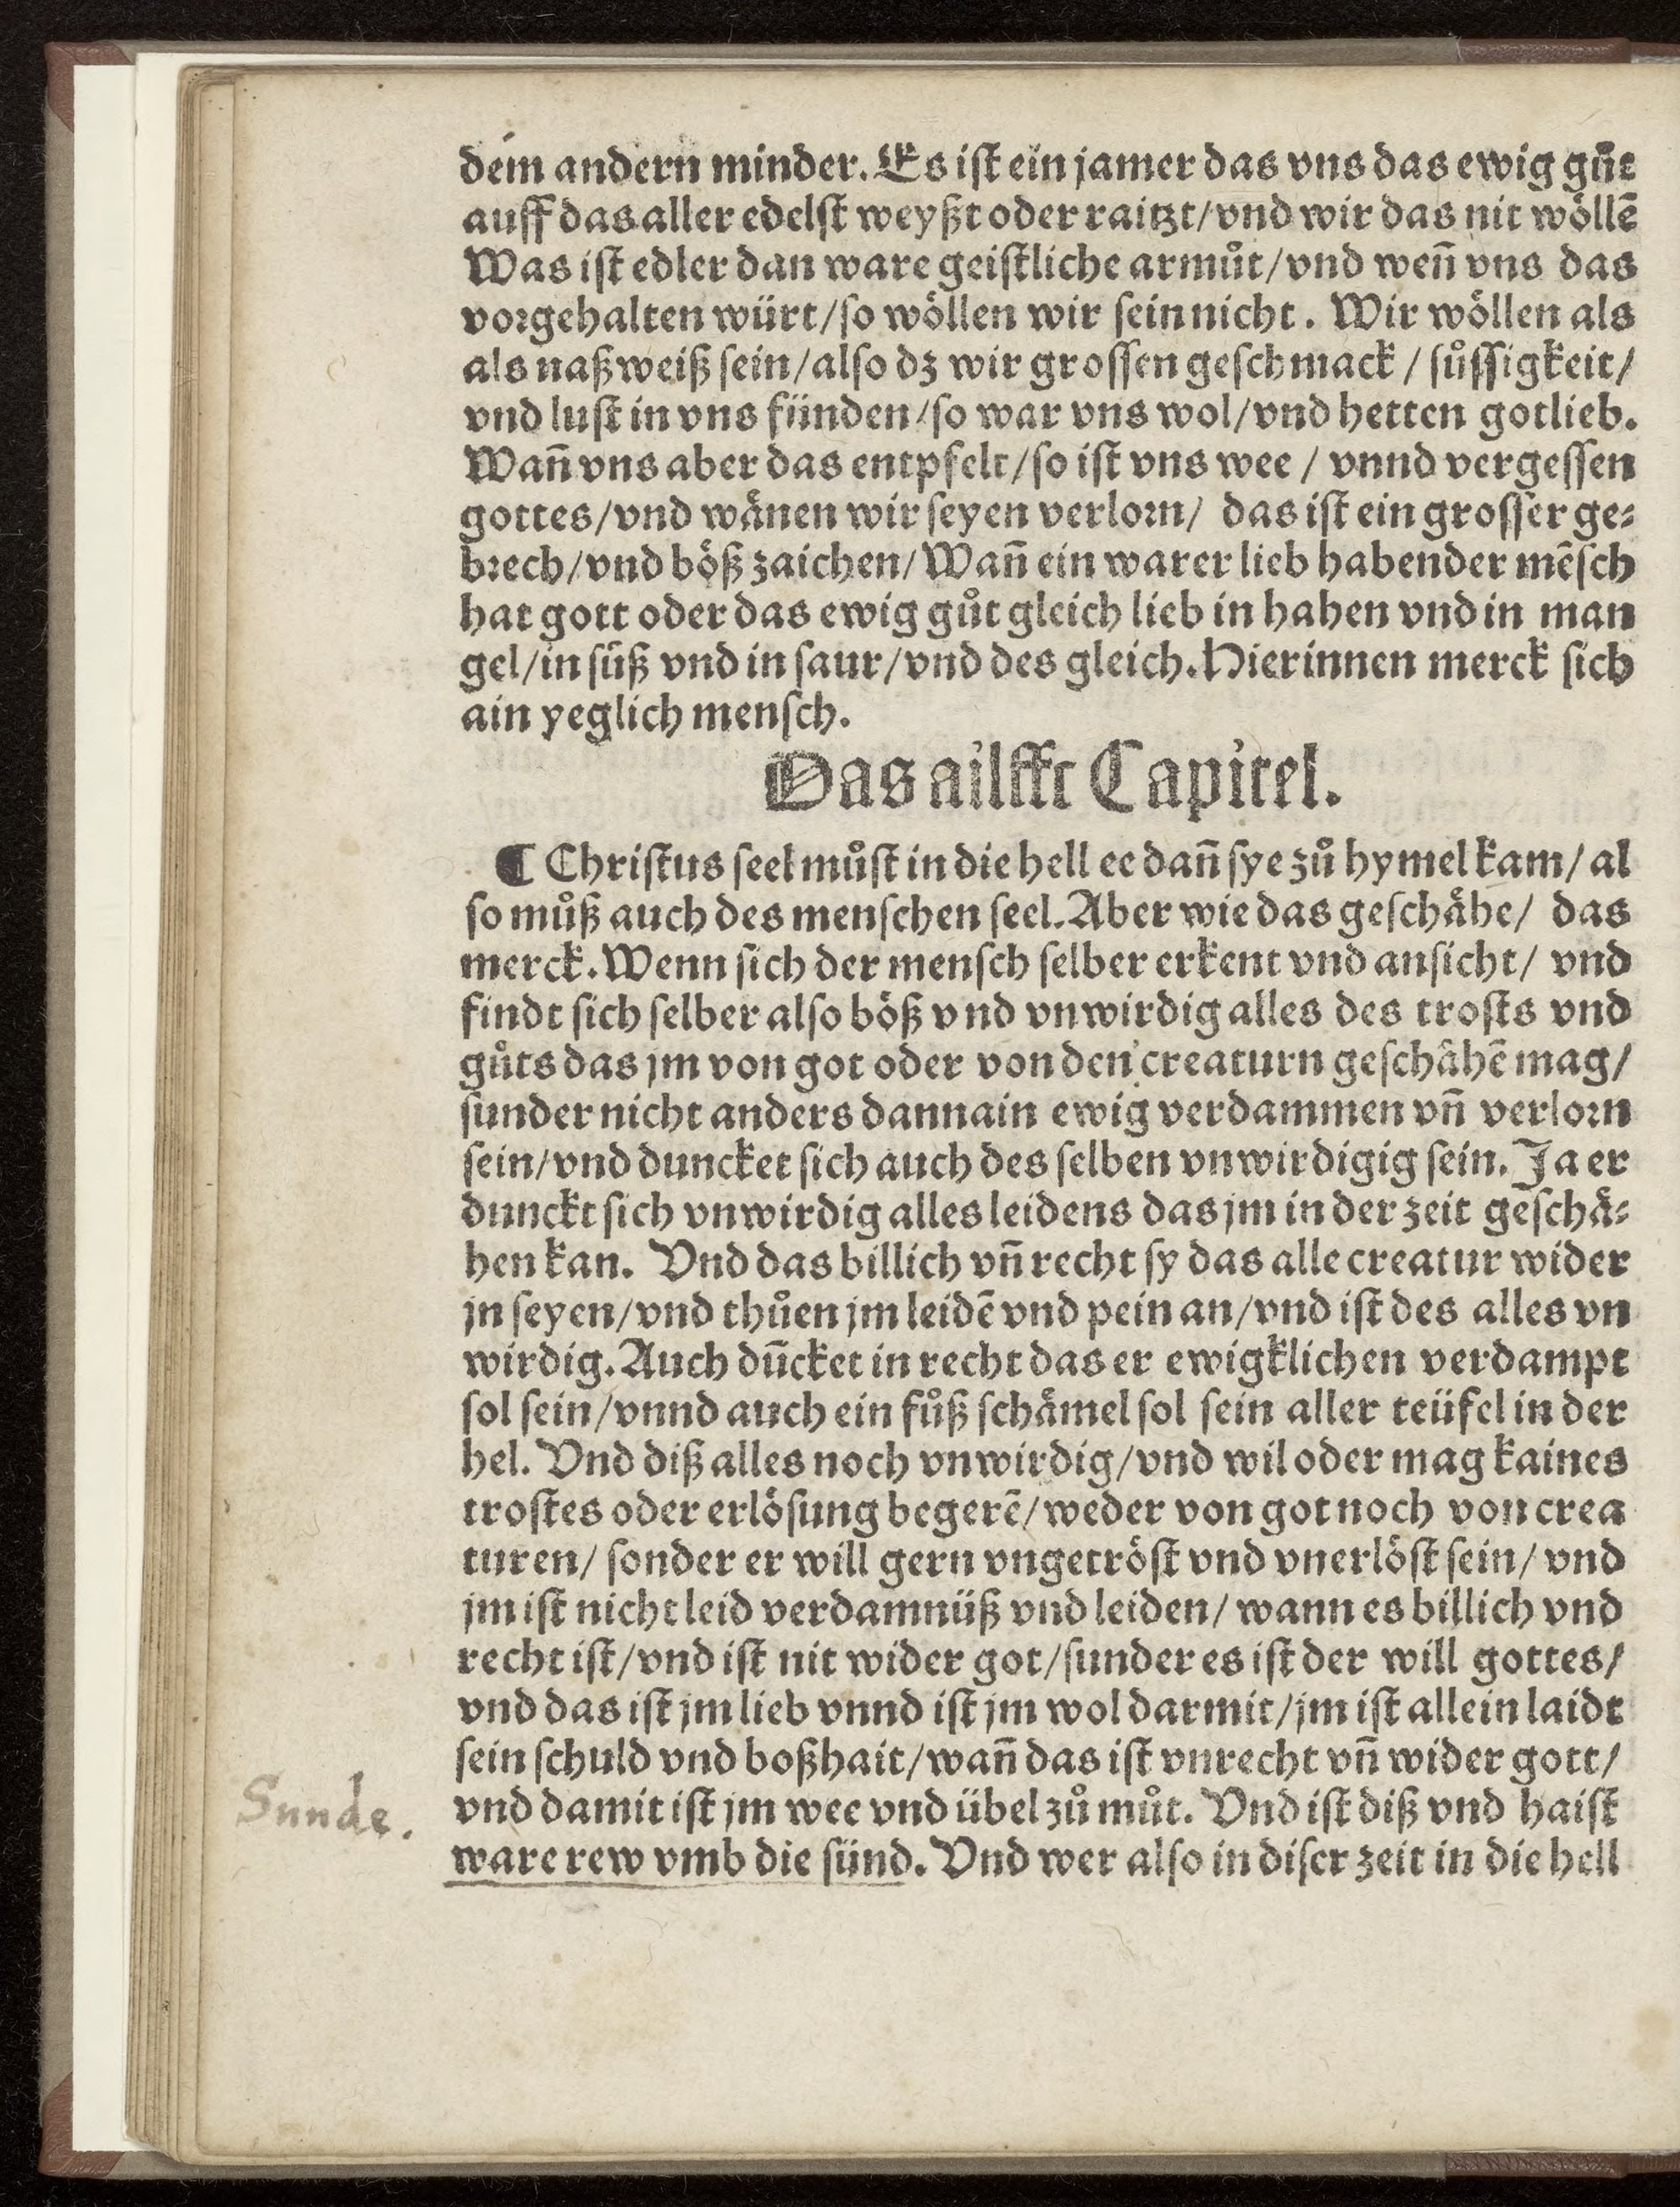 dem andern minder. Es iſt ein jamer das vns das ewig gůt
auff das aller edelſt weyßt oder raitzt/vnd wir das nit wöllẽ
Was iſt edler dan ware geiſtliche armůt/vnd weñ vns das
vorgehalten würt/ſo wöllen wir ſein nicht. Wir wöllen als
als naßweiß ſein/alſo dz wir groſſen geſchmack / ſůſſigkeit/
vnd luſt in vns fünden/ſo war vns wol/vnd hetten gotlieb.
Wañ vns aber das entpfelt/ſo iſt vns wee / vnnd vergeſſen
gottes/vnd wånen wir ſeyen verlorn/ das iſt ein groſſer ge⸗
brech/vnd böß zaichen/Wañ ein warer lieb habender mẽſch
hat gott oder das ewig gůt gleich lieb in haben vnd in man
gel/in ſüß vnd in ſaur/vnd des gleich. Hierinnen merck ſich
ain yeglich menſch.
Das ailfft Capitel.
¶ Chriſtus ſeel můſt in die hell ee dañ ſye zů hymel kam/ al
ſo můß auch des menſchen ſeel. Aber wie das geſchåhe/ das
merck. Wenn ſich der menſch ſelber erkent vnd anſicht/ vnd
findt ſich ſelber alſo böß vnd vnwirdig alles des troſts vnd
gůts das jm von got oder von den creaturn geſchåhẽ mag/
ſunder nicht anders dannain ewig verdammen vñ verlorn
ſein/vnd duncket ſich auch des ſelben vnwirdigig ſein. Ja er
dunckt ſich vnwirdig alles leidens das jm in der zeit geſchå⸗
hen kan. Vnd das billich vñ recht ſy das alle creatur wider
jn ſeyen/vnd thůen jm leidẽ vnd pein an/vnd iſt des alles vn
wirdig. Auch dũcket in recht das er ewigklichen verdampt
ſol ſein/vnnd auch ein fůß ſchåmel ſol ſein aller teüfel in der
hel. Vnd diß alles noch vnwirdig/vnd wil oder mag kaines
troſtes oder erlöſung begerẽ/weder von got noch von crea
turen/ ſonder er will gern vngetröſt vnd vnerlöſt ſein/ vnd
jm iſt nicht leid verdamnüß vnd leiden/ wann es billich vnd
recht iſt/vnd iſt nit wider got/ſunder es iſt der will gottes/
vnd das iſt jm lieb vnnd iſt jm wol darmit/jm iſt allein laidt
ſein ſchuld vnd boßhait/wañ das iſt vnrecht vñ wider gott/
Sunde.
vnd damit iſt jm wee vnd übel zů můt. Vnd iſt diß vnd haiſt
ware rew vmb die ſünd. Vnd wer alſo in diſer zeit in die hell